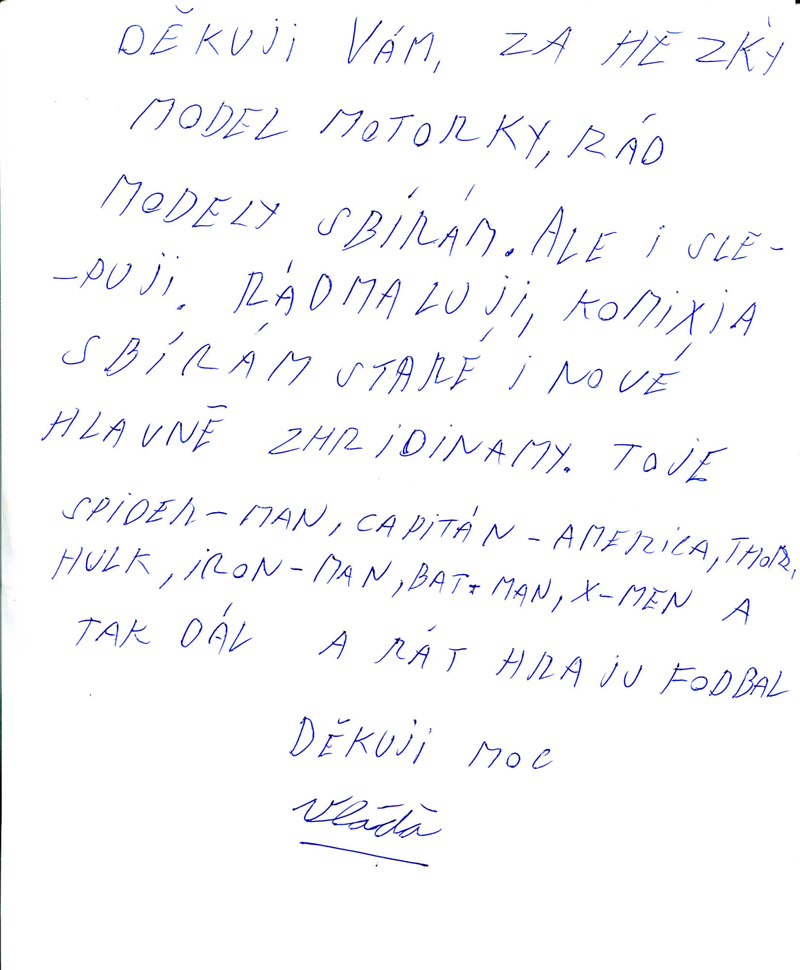 DĚKUJI VÁM, ZA HEZKÝ
MODEL MOTORKY, RÁD
MODELY SBÍRÁM. ALE I SLE-
-PUJI. RÁDMALUJI, KOMIXIA
SBÍRÁM STARÉ I NOVÉ
HLAVNĚ ZHRIDINAMY. TOJE
SPIDER-MAN, CAPITÁN-AMERICA, THOR,
HULK, IRON-MAN, BAT-MAN, X-MEN A
TAK DÁL A RÁT HRAJU FODBAL
DĚKUJI MOC
Vláďa